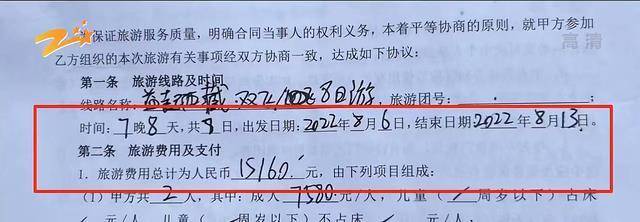 高清
为保证旅游服务质量，明确合同当事人的权利义务，本着平等协商的原则，就甲方参加
乙方组织的本次旅游有关事项经双方协商一致，达成如下协议：
第一条 旅游线路及时间
线路名称：西藏双飞8日游，旅游团号：；
时间：7晚8天，共日，出发日期：2022年8月6日，结束日期2022年8月13日。
第二条 旅游费用及支付
1. 旅游费用总计为人民币15160元，由下列项目组成：
（1）甲方共2人，其中：成人7580元/人，儿童（/周岁以下）占床
/元/人，儿童（/周岁以下）不占床/元/人